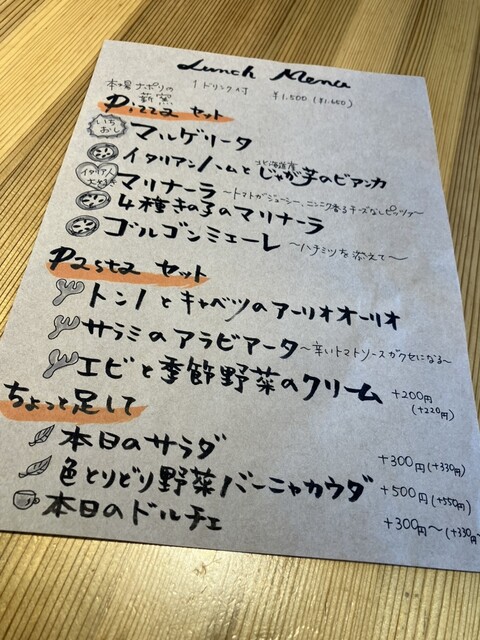 Lunch Menu
本場ナポリの
薪窯
Pizza セット 1ドリンク付 ¥1,500 (¥1,650)
いちおし マルゲリータ
イタリアンハムと北海道産じゃが芋のビアンカ
イタリア人大好き マリナーラ 〜トマトがジューシー、ニンニク香るチーズなしピッツァ〜
4種きのこのマリナーラ
ゴルゴンミエーレ 〜ハチミツを添えて〜
Pasta セット
トンノとキャベツのアーリオオーリオ
サラミのアラビアータ 〜辛いトマトソースがクセになる〜
エビと季節野菜のクリーム +200円
(+220円)
ちょっと足して
本日のサラダ +300円(+330円)
色とりどり野菜バーニャカウダ +500円(+550円)
本日のドルチェ +300円〜(+330円